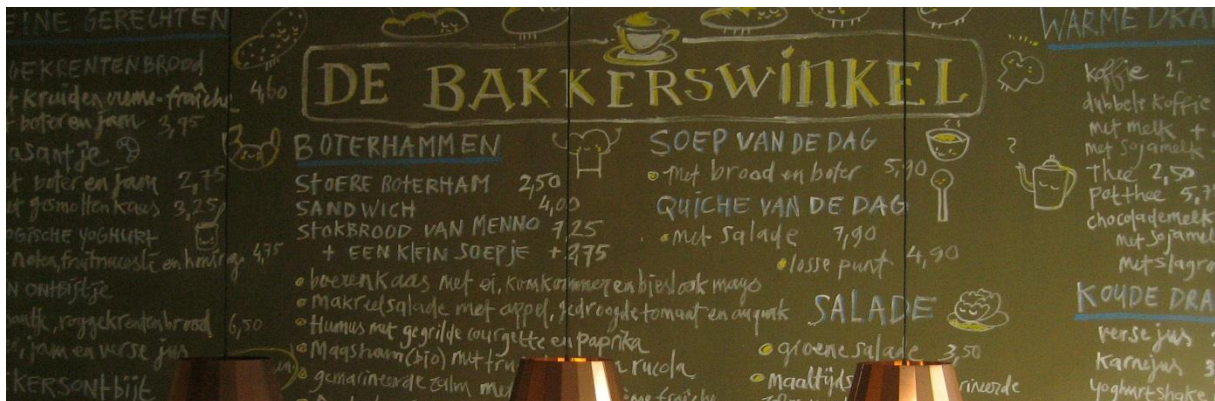 EINE GERECHTEN
GEKRENTENBROOD
kruiden creme-fraîche 4,60
boter en jam 3,95
santje
boter en jam 2,75
gesmolten kaas 3,25
OGISCHE YOGHURT
noten, fruitmuesli en honing 4,75
N ONTBIJTJE
roggekrentenbrood 6,50
jam en verse jus
KERSONTBIJT
DE BAKKERSWINKEL
BOTERHAMMEN
STOERE BOTERHAM 2,50
SANDWICH 4,00
STOKBROOD VAN MENNO 7,25
+ EEN KLEIN SOEPJE + 2,75
boerenkaas met ei, komkommer en bieslook mayo
makreelsalade met appel, gedroogde tomaat en augurk
Humus met gegrilde courgette en paprika
Maasham (bio) met rucola
gemarineerde zalm
SOEP VAN DE DAG
met brood en boter 5,90
QUICHE VAN DE DAG
met salade 7,90
losse punt 4,90
SALADE
groene salade 3,50
maaltijds
WARME DRA
koffie 2,-
dubbele koffie
met melk +
met sojamelk
thee 2,50
pot thee 5,7
chocolademelk
met sojamel
met slagro
KOUDE DRA
verse jus
Karnejus 3
yoghurtshake